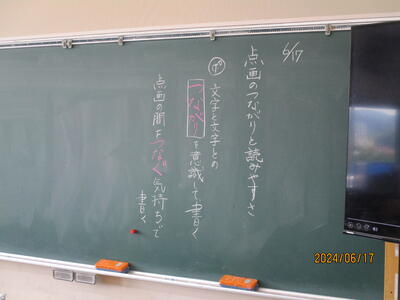 6/17
点画のつながりと読みやすさ
げ
文字と文字との
つながりを意識して書く
点画の間をつなぐ気持ちで
書く
2024/06/17